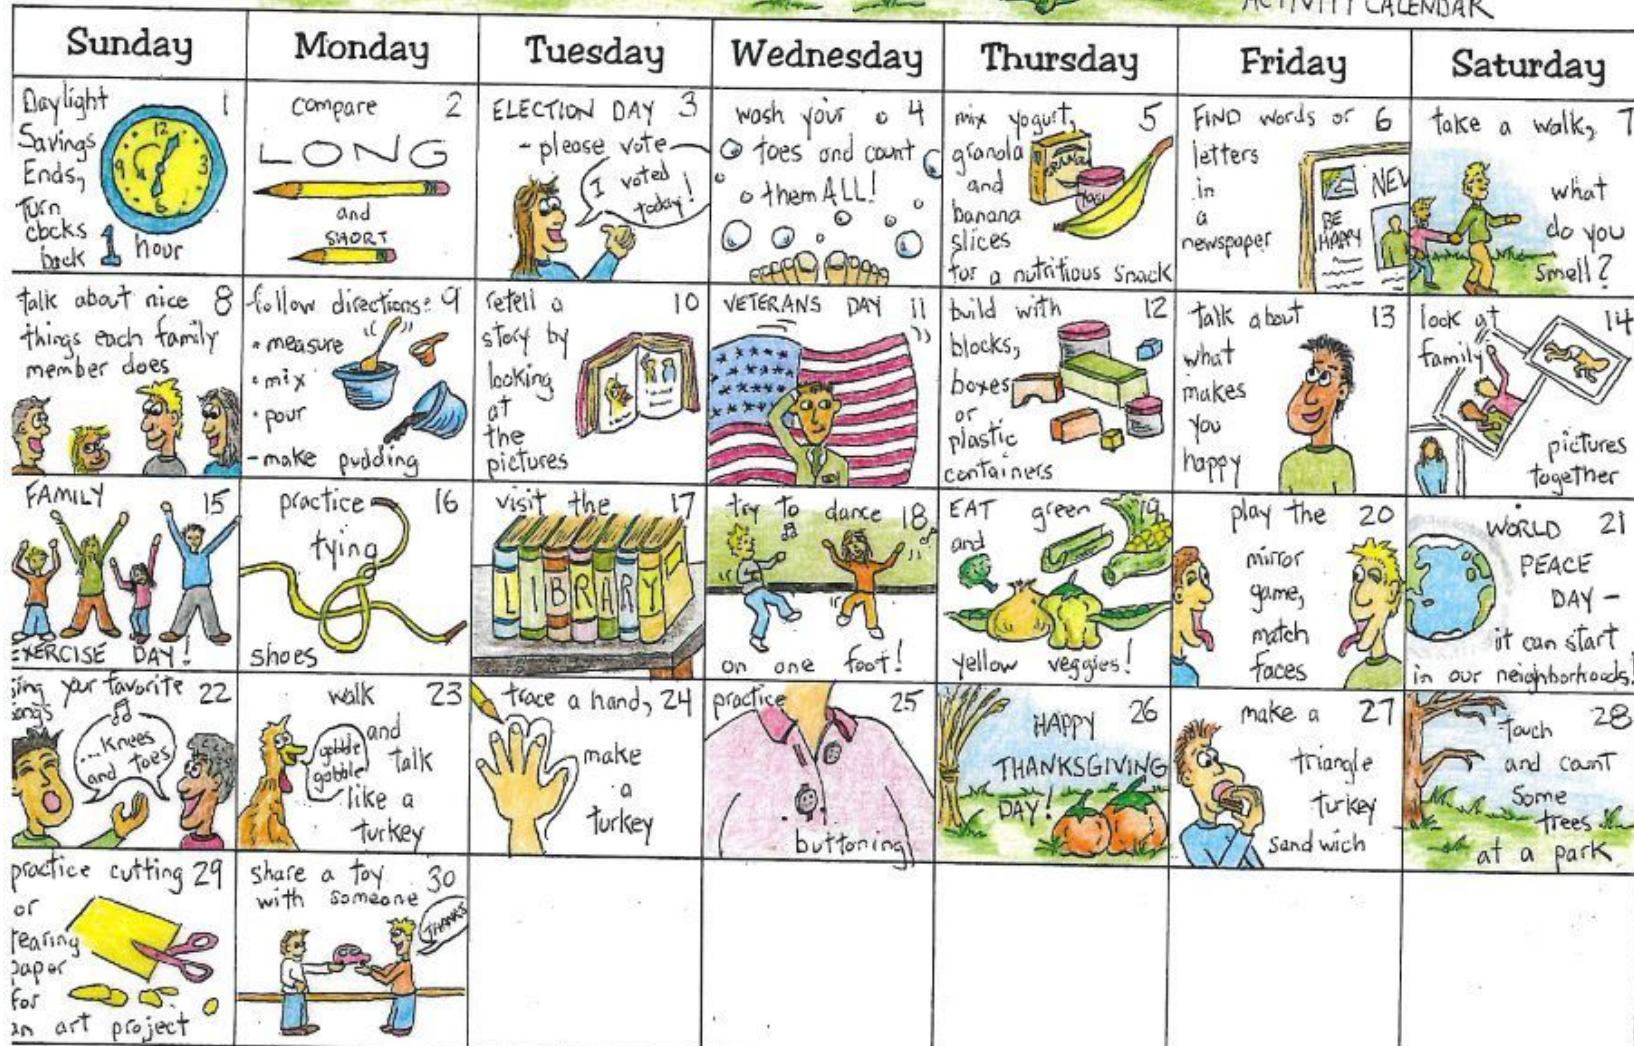 ACTIVITY CALENDAR
Sunday Monday Tuesday Wednesday Thursday Friday Saturday
Daylight 1
Savings
Ends,
Turn
clocks
back 1 hour
12
3
6
9
compare 2
LONG
and
SHORT
ELECTION DAY 3
- please vote
I voted
today!
wash your 4
toes and count
them ALL!
mix yogurt, 5
granola
and
banana
slices
for a nutritious snack
FIND words or 6
letters
in
a
newspaper
NEW
BE
HAPPY
take a walk, 7
what
do you
smell?
talk about nice 8
things each family
member does
follow directions: 9
• measure
• mix
• pour
- make pudding
retell a 10
story by
looking
at
the
pictures
VETERANS DAY 11
build with 12
blocks,
boxes
or
plastic
containers
talk about 13
what
makes
you
happy
look at 14
family
pictures
together
FAMILY 15
EXERCISE DAY!
practice 16
tying
shoes
visit the 17
LIBRARY
try to dance 18
on one foot!
EAT green 19
and
yellow veggies!
play the 20
mirror
game,
match
faces
WORLD 21
PEACE
DAY -
it can start
in our neighborhoods!
sing your favorite 22
songs
...knees
and toes
walk 23
and
talk
like a
turkey
gobble
gobble
trace a hand, 24
make
a
turkey
practice 25
buttoning
HAPPY 26
THANKSGIVING
DAY!
make a 27
triangle
turkey
sandwich
touch 28
and count
some
trees
at a park
practice cutting 29
or
tearing
paper
for
an art project
share a toy 30
with someone
THANKS